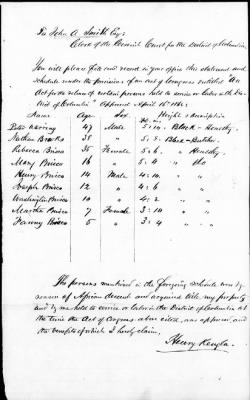 To John A. Smith Esq:
Clerk of the Circuit Court for the District of Columbia
You will please file and record in your office this statement and
schedule under the provisions of an act of Congress entitled "An
Act for the release of certain persons held to service or labor in the Dis-
trict of Columbia" Approved April 16th 1862:
Name Age Sex Height & description
Peter Waring 47 Male 5 : 10 Black - Healthy
Nathan Brooks 38 " 5 : 8 Black -
Rebecca Brisco 35 Female 5 : 6 " Healthy
Mary Brisco 16 " 5 : 4 " do
Henry Brisco 14 Male 4 : 10 " "
Joseph Brisco 12 " 4 : 6 " "
Washington Brisco 10 " 4 : 2 " "
Martha Brisco 7 Female 3 : 10 " "
Fanny Brisco 5 " 3 : 4 " "
The persons mentioned in the foregoing schedule were by
reason of African descent and acquired title, my property
and by me held to service or labor in the District of Columbia at
the time the Act of Congress above cited, was approved, and
the benefits of which I hereby claim,
Henry Kengla